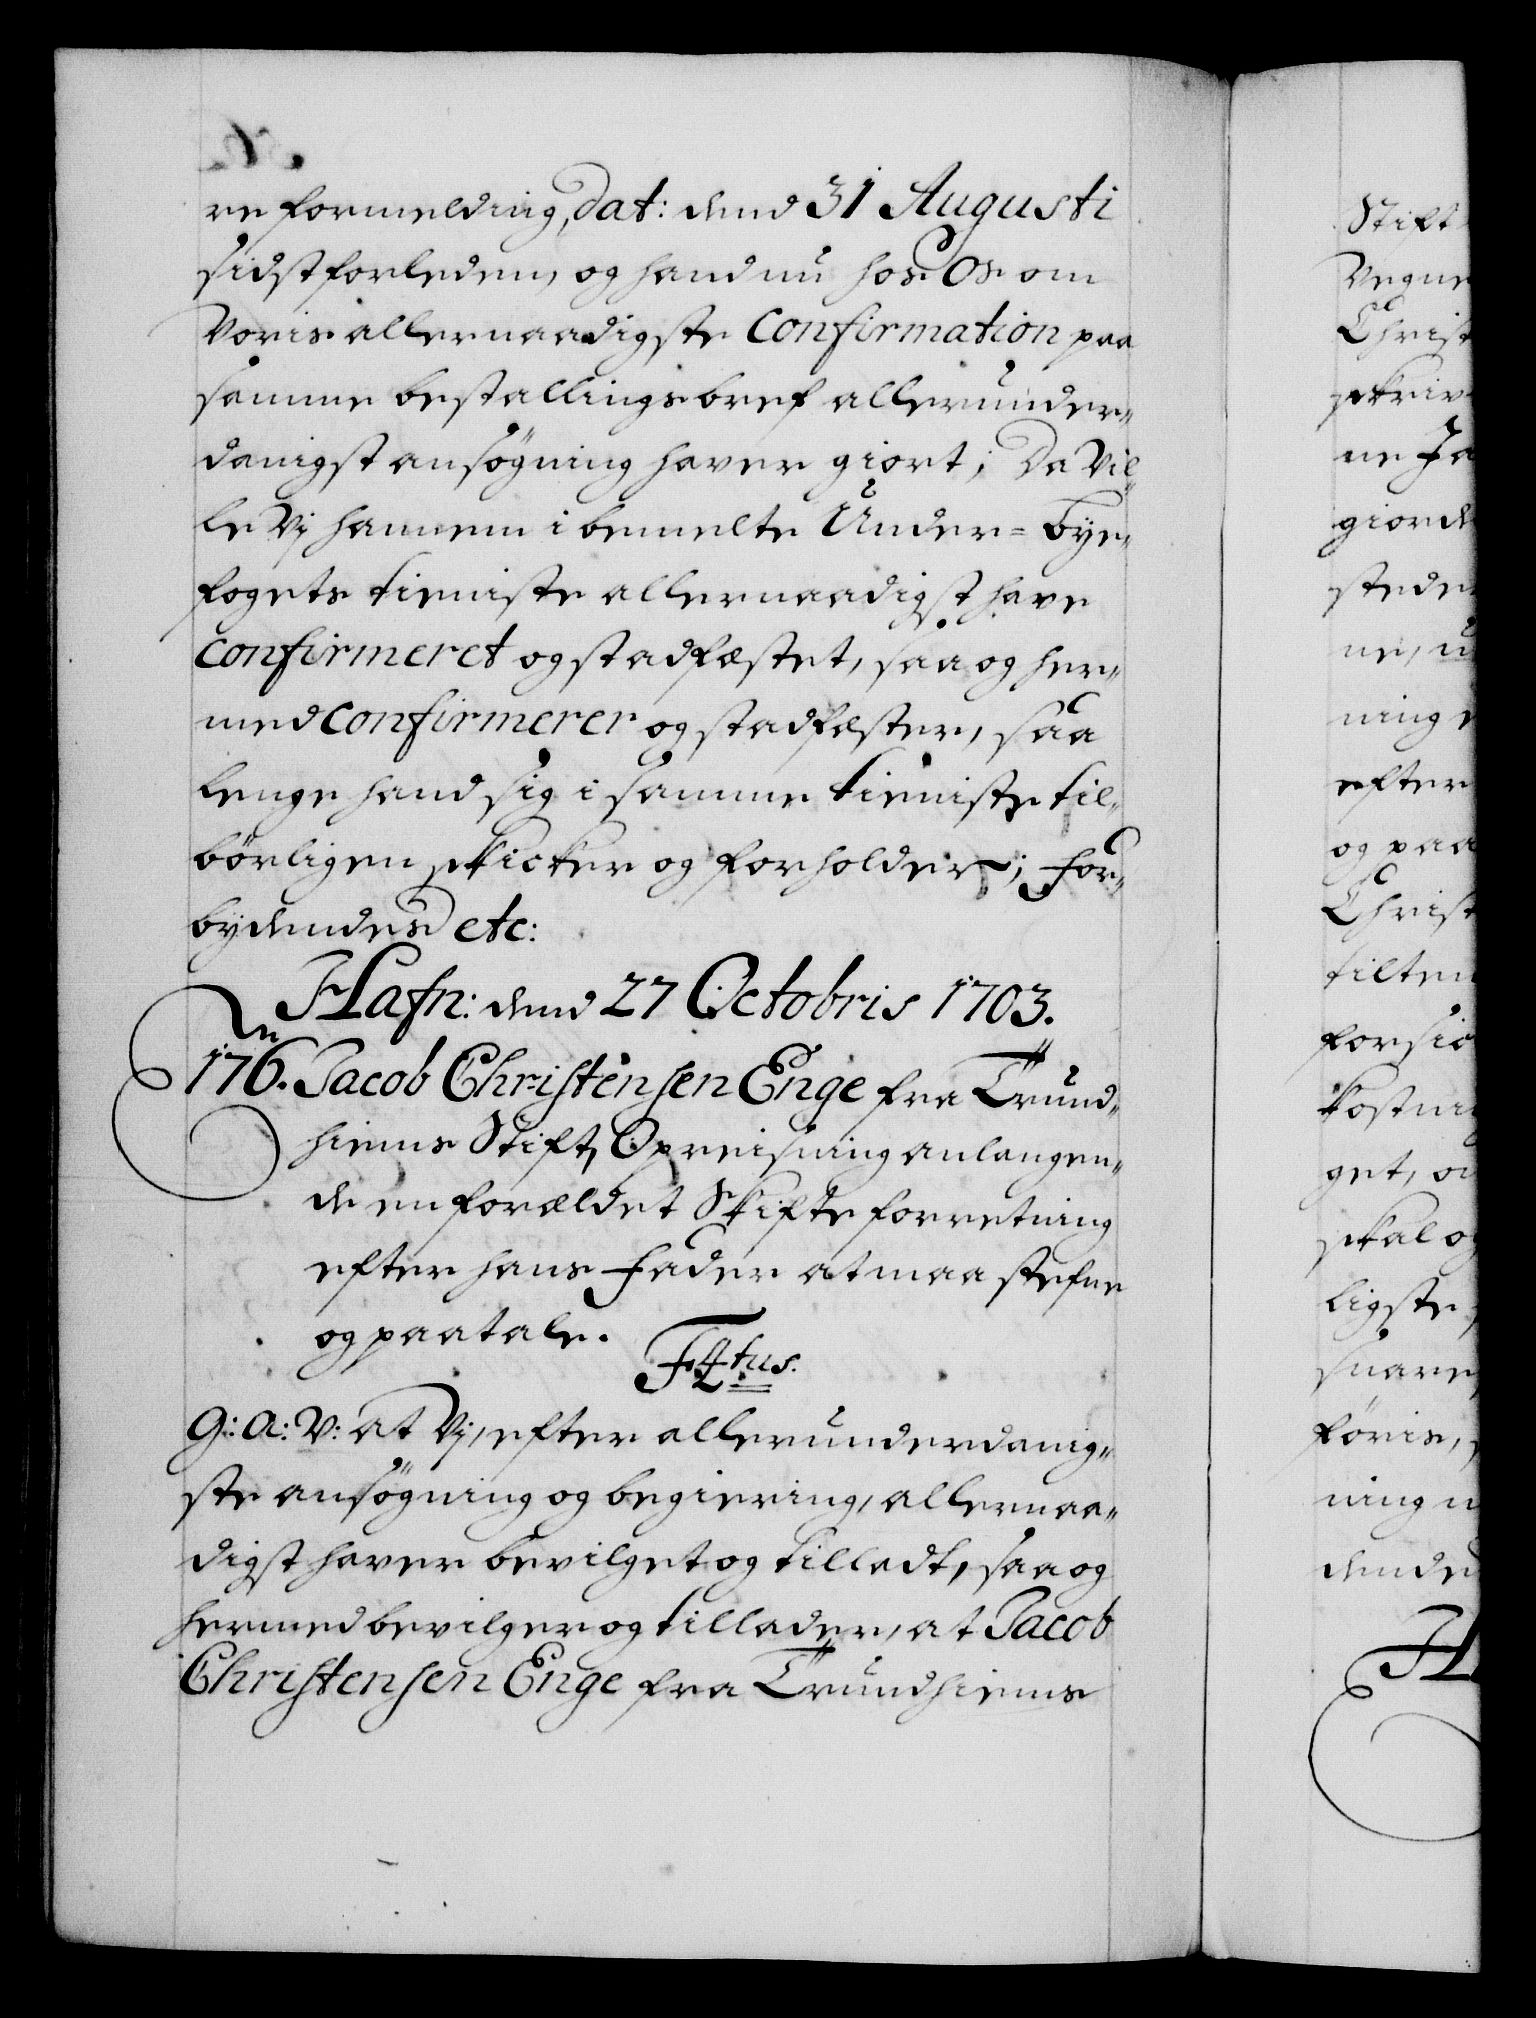 re formelding, dat: dend 31 Augusti
sidstforleden, og hand nu hos Os om
Voris allernaadigste Confirmation paa
samme bestallingsbref allerunder„
danigst ansögning haver giort; Da Vil„
le Vj hannem i bemelte Under= bye„
fogets tieniste allernaadigst have
confirmeret og stadfæstet, saa og her„
med confirmerer og stadfæster, saa
lenge hand sig i samme tieniste til„
börligen skicker og forholder; For„
bydendes etc:
Hafn: dend 27 Octobris 1703.
176. Jacob Christensen Enge fra Trund„
hiems Stift, Opreisning anlangen„
de en forældet Skifte forretning
efter hans Fader at maa stefne
og paatale.
F4tus.
G: A: V: at Vj, efter allerunderdanig„
ste ansögning og begiering, allernaa„
digst haver bevilget og tilladt, saa og
hermed bevilger og tillader, at Jacob
Christensen Enge fra Trundhiems
Stift
Vegne
Christ
skriv
ne Ja
giord
stede
ne, u
ning
efter
og paa
Christ
tilten
forsic
kostni
get, o
skal og
ligste
snare
føris,
ning
dende
H